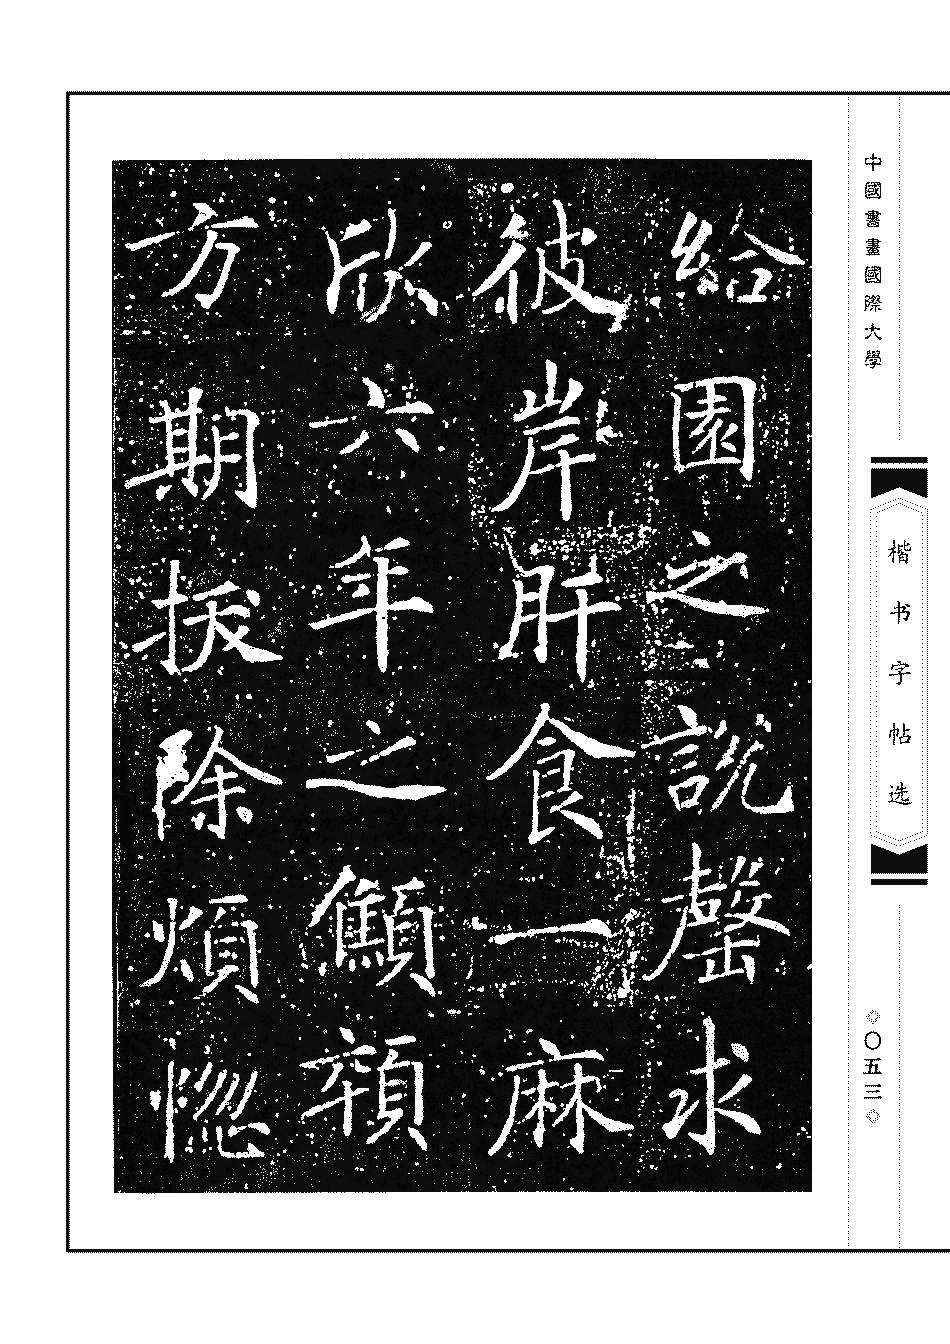 中國書畫國際大學
楷书字帖选
◇〇五三◇
給園之說罄求
彼岸肝食一麻
欣六年之顦顇
方期拔除煩惱